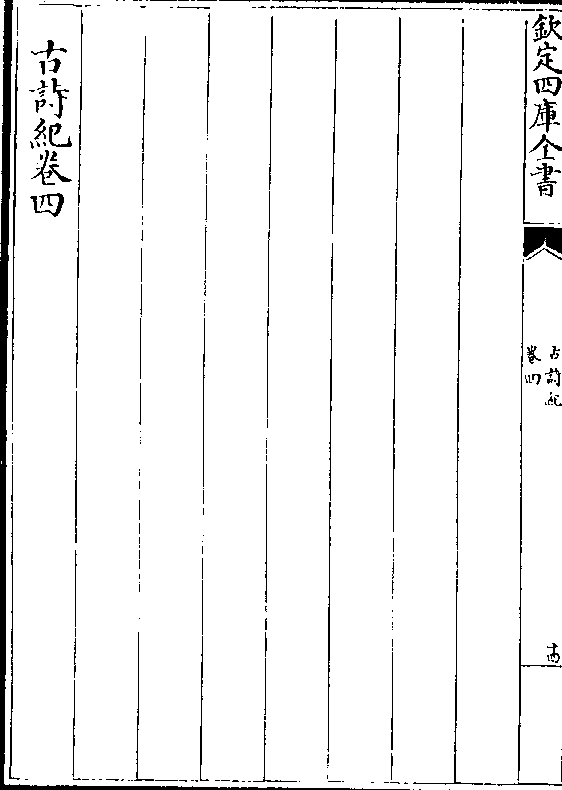 欽定四庫全書
古詩紀
卷四
十四
古詩紀卷四